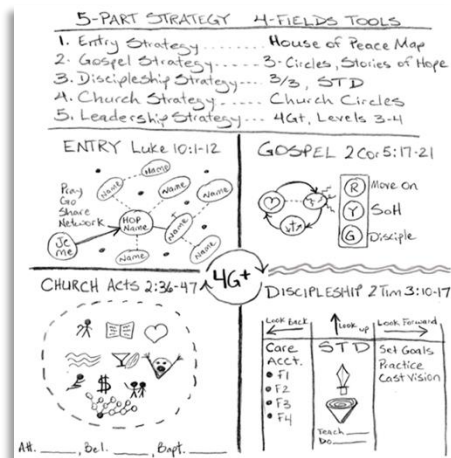 5-PART STRATEGY 4-FIELDS TOOLS
1. Entry Strategy........ House of Peace Map
2. Gospel Strategy...... 3-Circles, Stories of Hope
3. Discipleship Strategy.... 3/3, STD
4. Church Strategy...... Church Circles
5. Leadership Strategy... 4G+, Levels 3-4
ENTRY Luke 10:1-12
Pray
Go
Share
Network
Name
Name
Name
Name
HOP
Name
Name
Name
Name
Me
GOSPEL 2 Cor 5:17-21
R Move On
Y SoH
G Disciple
4G+
CHURCH ACTS 2:36-47
$
Att. ____, Bel. ____, Bapt. ____
DISCIPLESHIP 2 Tim 3:10-17
Look Back
Look up
Look Forward
Care
Acct.
• F1
• F2
• F3
• F4
STD
Teach ____
Do ____
Set Goals
Practice
Cast Vision